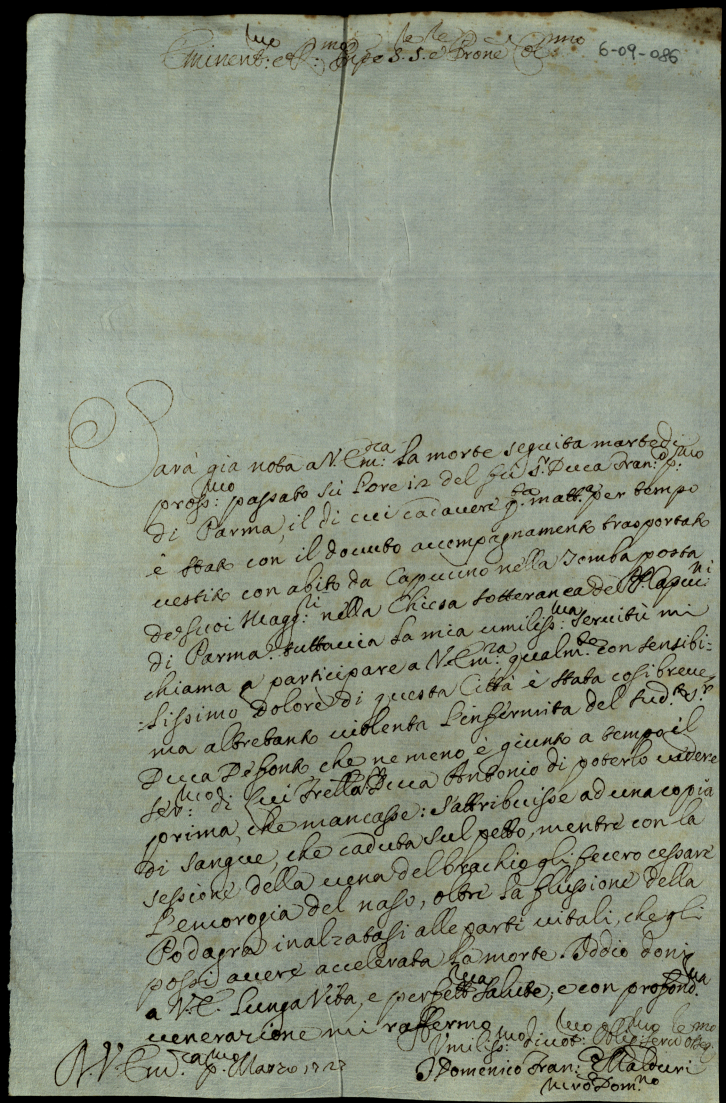 Eminent:mo e R:mo Prpe S. S.e e Prone Col:mo 6-09-086
Sarà già nota a V. Em:za la morte seguita martedì
pross:mo passato sù l'ore 12 del fù S.r Duca Fran:co p:mo
di Parma, il di cui cadavere q.ta matt.a per tempo
è stato con il dovuto accompagnamento trasportato
vestito con abito da Capucino nella Tomba posta
de suoi Magg:ri nella Chiesa sotteranea de PP. Capuc:ni
di Parma: tuttavia la mia umiliss:ma servitù mi
chiama a participare a V. Em:za qualm.te con sensibi-
lissimo dolore di questa Città è stata così breve,
ma altretanto violenta l'infermità del sud.to S.r
Duca Defonto che ne meno è giunto a tempo il
Ser:mo di lui Fratello Duca Antonio di poterlo vedere
prima, che mancasse: s'attribuisse ad una copia
di sangue, che caduta sul petto, mentre con la
sessione della vena del brachio gli fecero cessare
l'emorogia del naso, oltre la flussione della
Podagra inalzatasi alle parti vitali, che gli
possi avere accelerata la morte. Iddio doni
a V. E. lunga Vita, e perfetta salute, e con profond:ma
venerazione mi raffermo
D. V. Em:za p:mo Marzo, 1727
Umiliss:mo Divot:mo Oblig:mo Serv.e Obbg:mo
Domenico Fran: